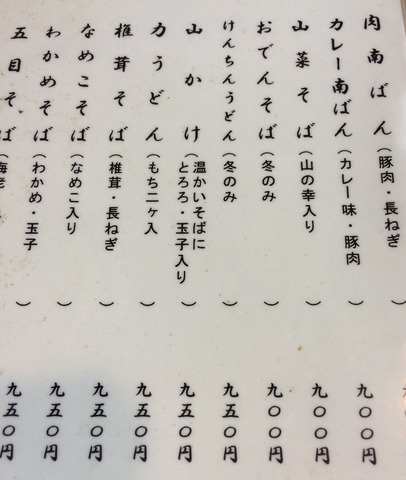 肉南ばん（豚肉・長ねぎ）
カレー南ばん（カレー味・豚肉）九〇〇円
山菜そば（山の幸入り）九〇〇円
おでんそば（冬のみ）九〇〇円
けんちんうどん（冬のみ）九五〇円
山かけ（温かいそばに
とろろ・玉子入り）九五〇円
力うどん（もち二ヶ入）九五〇円
椎茸そば（椎茸・長ねぎ）九五〇円
なめこそば（なめこ入り）九五〇円
わかめそば（わかめ・玉子）九五〇円
五目そば（海老